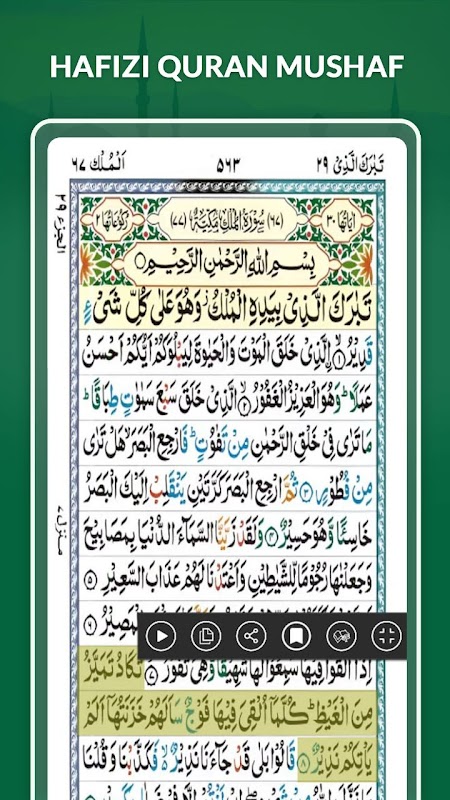 HAFIZI QURAN MUSHAF
تَبٰرَكَ الَّذِىْ ٢٩
٥٦٣
اَلْمُلْك ٦٧
الجزء ٢٩
اٰيَاتُهَا ٣٠
(٦٧) سُوْرَةُ الْمُلْكِ مَكِّيَّةٌ (٧٧)
رُكُوْعَاتُهَا ٢
بِسْمِ اللّٰهِ الرَّحْمٰنِ الرَّحِيْمِ
تَبٰرَكَ الَّذِىْ بِيَدِهِ الْمُلْكُ ۫ وَهُوَ عَلٰى كُلِّ شَىْءٍ
قَدِيْرُ ۙ ١ الَّذِىْ خَلَقَ الْمَوْتَ وَالْحَيٰوةَ لِيَبْلُوَكُمْ اَيُّكُمْ اَحْسَنُ
عَمَلًا ؕ وَهُوَ الْعَزِيْزُ الْغَفُوْرُ ۙ ٢ الَّذِىْ خَلَقَ سَبْعَ سَمٰوٰتٍ طِبَاقًا ؕ
مَا تَرٰى فِىْ خَلْقِ الرَّحْمٰنِ مِنْ تَفٰوُتٍ ؕ فَارْجِعِ الْبَصَرَ ۙ هَلْ تَرٰى
مِنْ فُطُوْرٍ ٣ ثُمَّ ارْجِعِ الْبَصَرَ كَرَّتَيْنِ يَنْقَلِبْ اِلَيْكَ الْبَصَرُ
خَاسِئًا وَّهُوَ حَسِيْرٌ ٤ وَلَقَدْ زَيَّنَّا السَّمَآءَ الدُّنْيَا بِمَصَابِيْحَ
وَجَعَلْنٰهَا رُجُوْمًا لِّلشَّيٰطِيْنِ وَاَعْتَدْنَا لَهُمْ عَذَابَ السَّعِيْرِ ٥
الْمَصِيْرُ ٦
اِذَاۤ اُلْقُوْا فِيْهَا سَمِعُوْا لَهَا شَهِيْقًا وَّهِىَ تَفُوْرُ ۙ ٧ تَكَادُ تَمَيَّزُ
مِنَ الْغَيْظِ ؕ كُلَّمَاۤ اُلْقِىَ فِيْهَا فَوْجٌ سَاَلَهُمْ خَزَنَتُهَاۤ اَلَمْ
يَاْتِكُمْ نَذِيْرٌ ٨ قَالُوْا بَلٰى قَدْ جَآءَنَا نَذِيْرٌ ۙ فَكَذَّبْنَا وَقُلْنَا